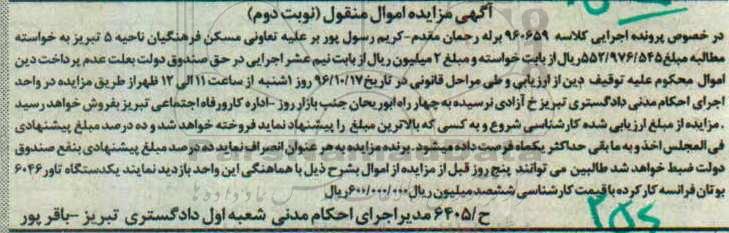 آگهی مزایده اموال منقول (نوبت دوم)
در خصوص پرونده اجرایی کلاسه ۹۶۰۶۵۹ برله رحمان مقدم-کریم رسول پور بر علیه تعاونی مسکن فرهنگیان ناحیه ۵ تبریز به خواسته
مطالبه مبلغ ۵۵۲/۹۷۶/۵۴۵ریال از بابت خواسته و مبلغ ۲ میلیون ریال از بابت نیم عشر اجرایی در حق صندوق دولت بعلت عدم پرداخت دین
اموال محکوم علیه توقیف دین از ارزیابی و طی مراحل قانونی در تاریخ ۹۶/۱۰/۱۷ روز ۱شنبه از ساعت ۱۱ الی ۱۲ ظهر از طریق مزایده در واحد
اجرای احکام مدنی دادگستری تبریز خ آزادی نرسیده به چهار راه ابوریحان جنب بازار روز -اداره کارورفاه اجتماعی تبریز بفروش خواهد رسید
.مزایده از مبلغ ارزیابی شده کارشناسی شروع و به کسی که بالاترین مبلغ را پیشنهاد نماید فروخته خواهد شد و ده درصد مبلغ پیشنهادی
فی المجلس اخذ و به ما بقی حداکثر یکماه فرصت داده میشود. برنده مزایده به هر عنوان انصراف نماید ده درصد مبلغ پیشنهادی بنفع صندوق
دولت ضبط خواهد شد طالبین می توانند پنج روز قبل از مزایده از اموال بشرح ذیل با هماهنگی این واحد بازدید نمایند یکدستگاه تاور ۶۰۴۶
بوتان فرانسه کار کرده با قیمت کارشناسی ششصد میلیون ریال ۶۰۰/۰۰۰/۰۰۰ریال
ح/۶۴۰۵ مدیر اجرای احکام مدنی شعبه اول دادگستری تبریز -باقر پور